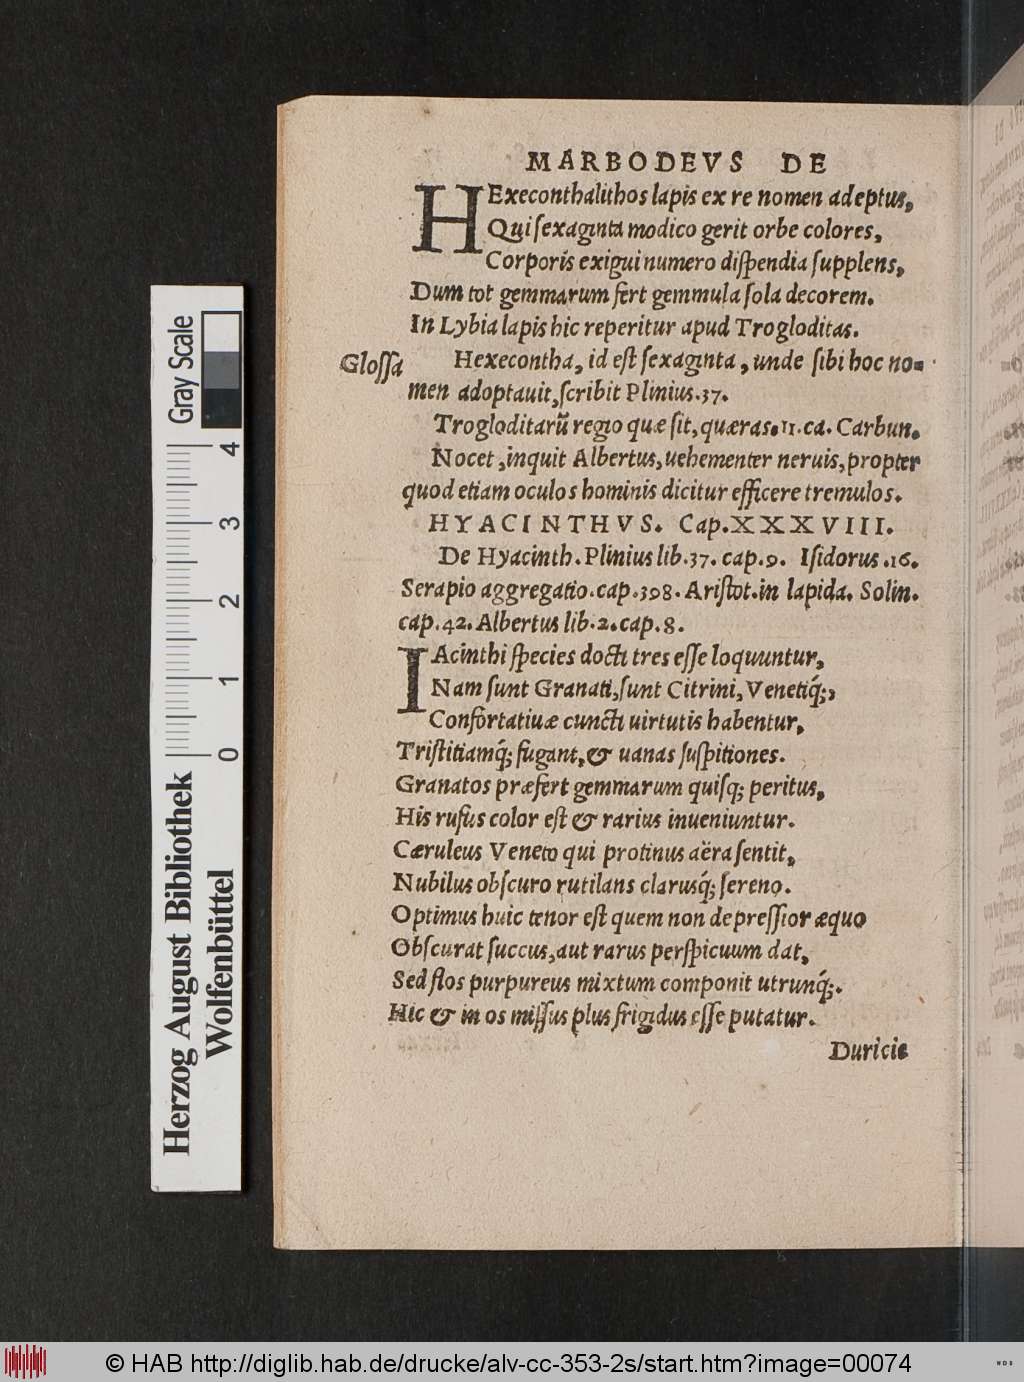 MARBODEVS DE
HExeconthalithos lapis ex re nomen adeptus,
Qui ſexaginta modico gerit orbe colores,
Corporis exigui numero diſpendia ſupplens,
Dum tot gemmarum fert gemmula ſola decorem.
In Lybia lapis hic reperitur apud Trogloditas.
Gloſſa Hexecontha, id eſt ſexaginta, unde ſibi hoc no-
men adoptauit, ſcribit Plinius.37.
Trogloditarū regio quæ ſit, quæras.11.ca. Carbun.
Nocet, inquit Albertus, uehementer neruis, propter
quod etiam oculos hominis dicitur efficere tremulos.
HYACINTHVS. Cap.XXXVIII.
De Hyacinth. Plinius lib.37. cap.9. Iſidorus.16.
Serapio aggregatio.cap.398. Ariſtot.in lapida. Solin.
cap.42. Albertus lib.2.cap.8.
IAcinthi ſpecies docti tres eſſe loquuntur,
Nam ſunt Granati, ſunt Citrini, Venetiq́;,
Confortatiuæ cuncti uirtutis habentur,
Triſtitiamq́; fugant, & uanas ſuſpitiones.
Granatos præfert gemmarum quiſq; peritus,
His rufus color eſt & rarius inueniuntur.
Cæruleus Veneto qui protinus aëra ſentit,
Nubilus obſcuro rutilans clarusq́; ſereno.
Optimus huic tenor eſt quem non depreſſior æquo
Obſcurat ſuccus, aut rarus perſpicuum dat,
Sed flos purpureus mixtum componit utrunq́;.
Hic & in os miſſus plus frigidus eſſe putatur.
Duricie
Gray Scale
4
3
2
1
0
Herzog August Bibliothek
Wolfenbüttel
© HAB http://diglib.hab.de/drucke/alv-cc-353-2s/start.htm?image=00074